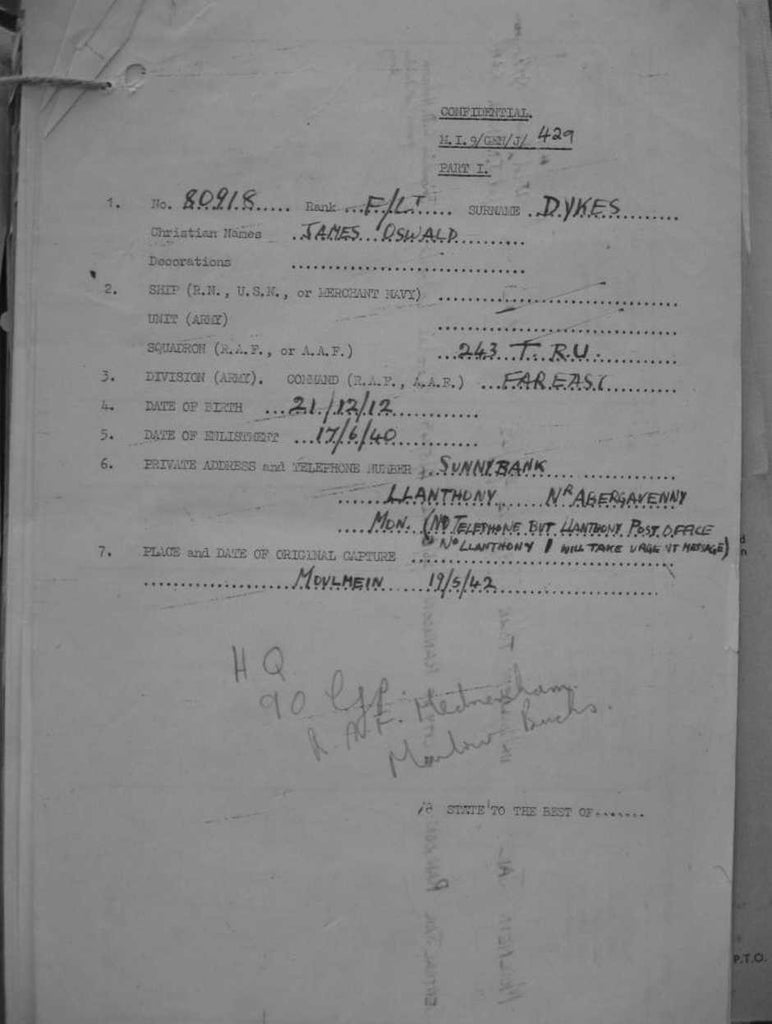 CONFIDENTIAL.
M.I.9/GEN/J/ 429
PART I.
1. No. 80918..... Rank ...F/LT..... SURNAME ..DYKES.........
Christian Names ..JAMES OSWALD..........
Decorations ..............................
2. SHIP (R.N., U.S.N., or MERCHANT NAVY) ..............................
UNIT (ARMY) ..............................
SQUADRON (R.A.F., or A.A.F.) ...243 T.R.U...........
3. DIVISION (ARMY). COMMAND (R.A.F., A.A.F.) ...FAR EAST..........
4. DATE OF BIRTH ...21/12/12............
5. DATE OF ENLISTMENT ...17/6/40............
6. PRIVATE ADDRESS and TELEPHONE NUMBER ..SUNNYBANK..............
......LLANTHONY...... NR ABERGAVENNY
.....MON. (NO TELEPHONE BUT LLANTHONY POST OFFICE
No LLANTHONY 1 WILL TAKE URGENT MESSAGE)
7. PLACE and DATE OF ORIGINAL CAPTURE ..............................
....................MOULMEIN 19/5/42....................
HQ
90 Gp.
R.A.F. Medmenham
Marlow Bucks.
STATE TO THE BEST OF.......
P.T.O.